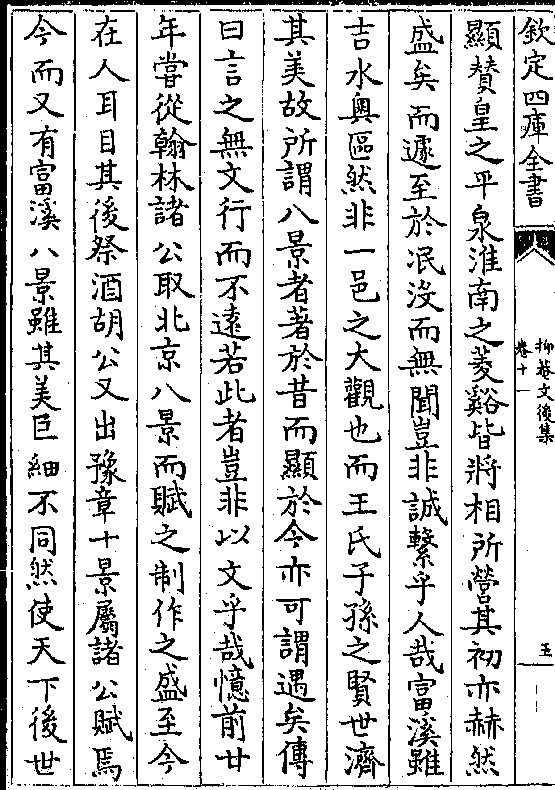 欽定四庫全書
抑菴文後集
卷十一
五
顯贊皇之平泉淮南之菱谿皆將相所營其初亦赫然
盛矣而遽至於泯沒而無聞豈非誠繫乎人哉富溪雖
吉水奥區然非一邑之大觀也而王氏子孫之賢世濟
其美故所謂八景者著於昔而顯於今亦可謂遇矣傳
曰言之無文行而不遠若此者豈非以文乎哉憶前廿
年嘗從翰林諸公取北京八景而賦之制作之盛至今
在人耳目其後祭酒胡公又出豫章十景屬諸公賦焉
今而又有富溪八景雖其美巨細不同然使天下後世